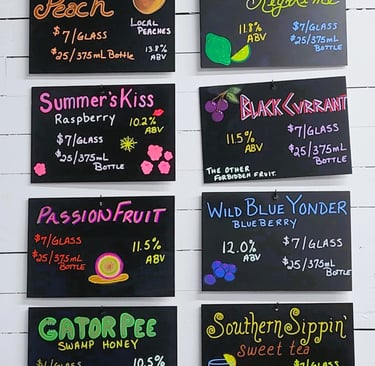 Peach
LOCAL
PEACHES
$7/GLASS
$25/375mL BOTTLE
13.8%
ABV
11.8%
ABV
$7/GLASS
$25/375mL
BOTTLE
Summer's Kiss
Raspberry
10.2%
ABV
$7/GLASS
$25/375mL
BOTTLE
BLACK CURRANT
11.5%
ABV
$7/GLASS
$25/375mL
BOTTLE
THE OTHER
FORBIDDEN FRUIT.
PASSION FRUIT
$7/GLASS
$25/375mL
BOTTLE
11.5%
ABV
WILD BLUE YONDER
BLUEBERRY
12.0%
ABV
$7/GLASS
$25/375mL
BOTTLE
GATOR PEE
SWAMP HONEY
10.5%
Southern Sippin'
sweet tea
$7/GLASS